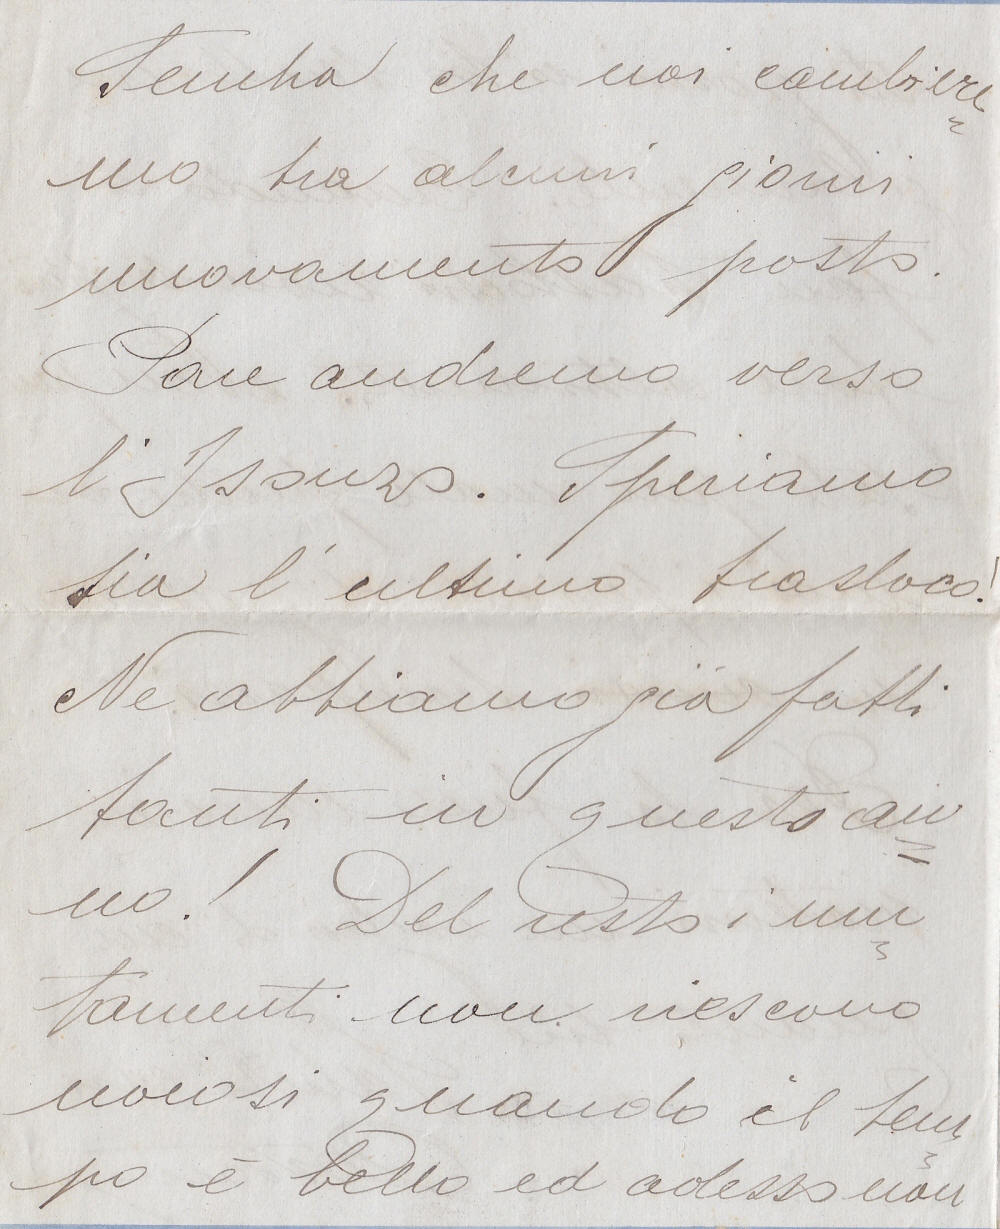 Sembra che noi cambiere
mo tra alcuni giorni
nuovamente posto.
Pare andremo verso
l'Isonzo. Speriamo
sia l'ultimo trasloco!
Ne abbiamo già fatti
tanti in questo an
no! Del resto i mu
tamenti non riescono
noiosi quando il tem
po è bello ed adesso non